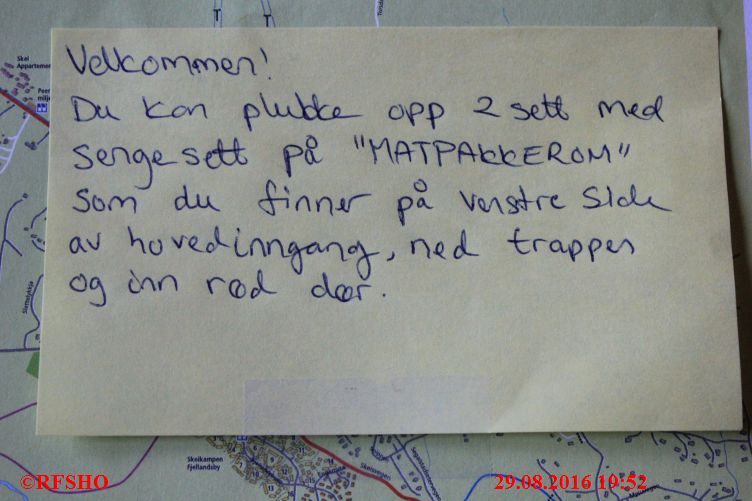 Velkommen!
Du kan plukke opp 2 sett med
senge sett på "MATPAKKEROM"
som du finner på venstre side
av hovedinngang, ned trappen
og inn rød dør.
Skei
Appartement
Skeikampen
Fjellandsby
Skeisvegen
©RFSHO
29.08.2016 19:52